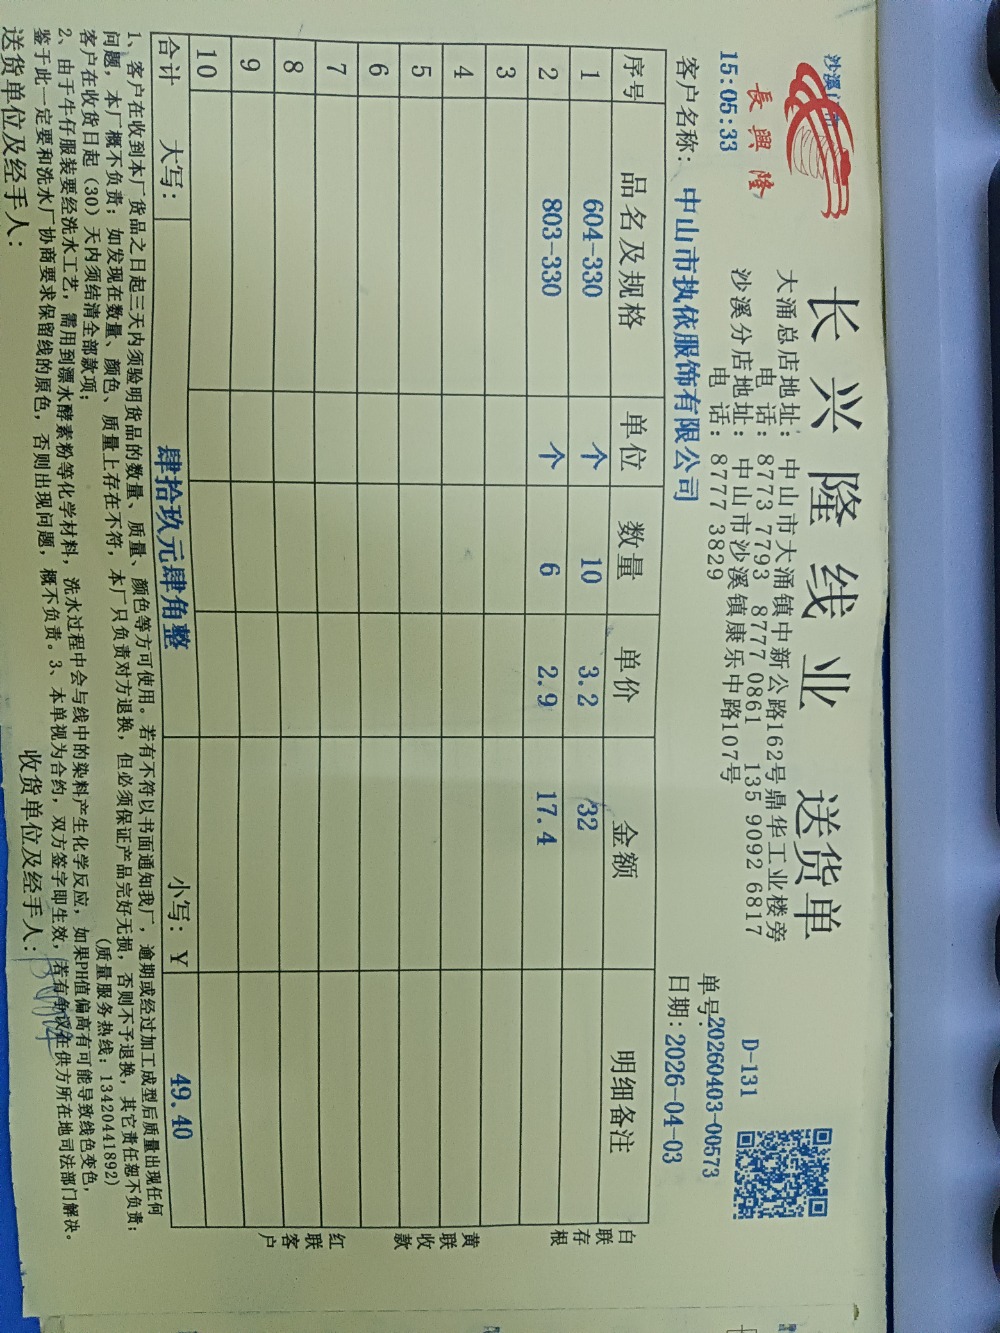 长兴隆线业 送货单
沙溪门市
長興隆
15:05:33
大涌总店地址:中山市大涌镇中新公路162号鼎华工业楼旁
电 话:8773 7793 8777 0861 135 9092 6817
沙溪分店地址:中山市沙溪镇康乐中路107号
电 话:8777 3829
D-131
单号:20260403-00573
客户名称: 中山市执依服饰有限公司
日期:2026-04-03
序号 品名及规格 单位 数量 单价 金额 明细备注
1 604-330 个 10 3.2 32
2 803-330 个 6 2.9 17.4
3
4
5
6
7
8
9
10
合计 大写: 肆拾玖元肆角整 小写:Y 49.40
白联存根
黄联收款
红联客户
1、客户在收到本厂货品之日起三天内须验明货品的数量、质量、颜色等方可使用。若有不符以书面通知我厂,逾期或经过加工成型后质量出现任何
问题,本厂概不负责;如发现在数量、颜色、质量上存在不符,本厂只负责对方退换,但必须保证产品完好无损,否则不予退换,其它责任恕不负责;
客户在收货日起(30)天内须结清全部款项; (质量服务热线:13420441892)
2、由于牛仔服装要经洗水工艺,需用到漂水酵素粉等化学材料,洗水过程中会与线中的染料产生化学反应,如果PH值偏高有可能导致线色变色,
鉴于此一定要和洗水厂协商要求保留线的原色,否则出现问题,概不负责。3、本单视为合约,双方签字即生效,若有争议在供方所在地司法部门解决。
送货单位及经手人: 收货单位及经手人: